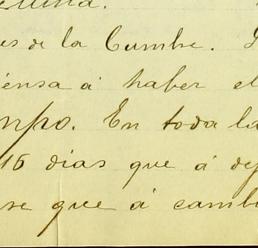 es de la Cumbre.
ensa á haber el
mpo. En toda la
16 dias que á de
se que á cambi